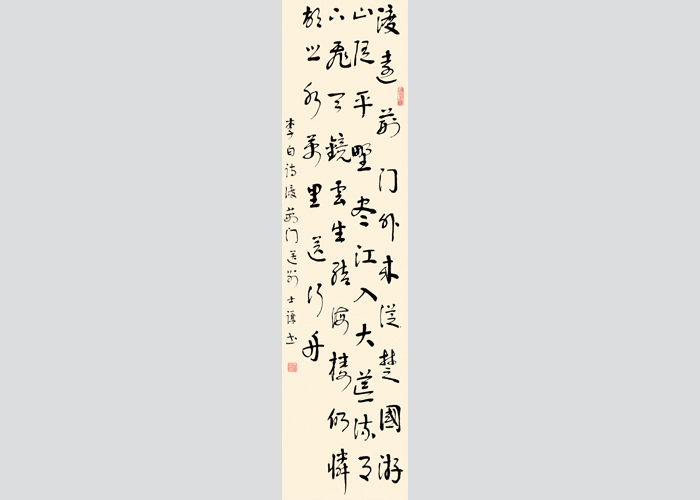 渡遠荆门外来從楚國游
山随平野尽江入大荒流月
下飛天鏡雲生結海楼仍憐
故乡水萬里送行舟
李白诗渡荆门送别 士 书